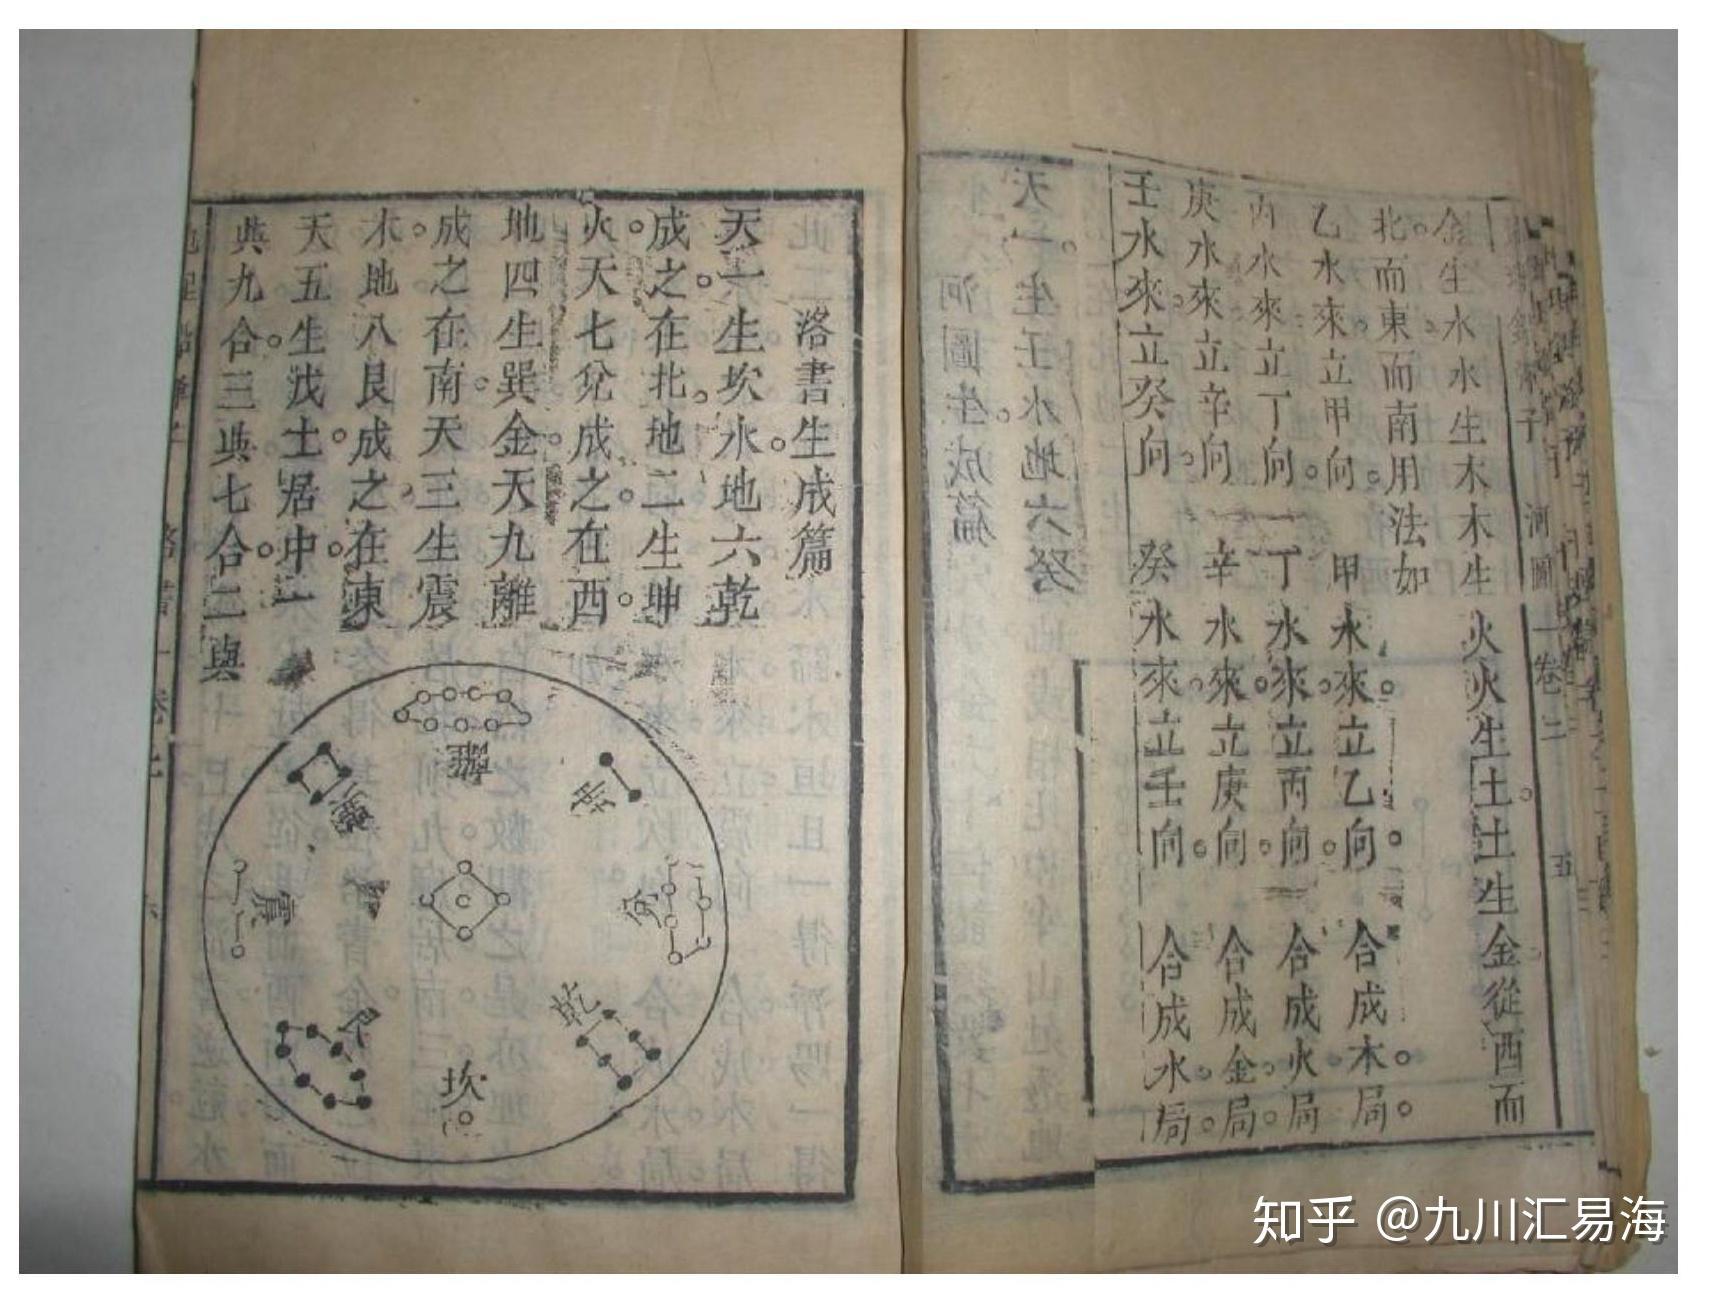 金生水水生木木生火火生土土生金從西而
北而東而南用法如
乙水來立甲向 甲水來立乙向 合成木局
丙水來立丁向 丁水來立丙向 合成火局
庚水來立辛向 辛水來立庚向 合成金局
壬水來立癸向 癸水來立壬向 合成水局
河圖 卷二 五
洛書生成篇
天一生坎水地六乾
成之在北地二生坤
火天七兌成之在西
地四生巽金天九離
成之在南天三生震
木地八艮成之在東
天五生戊土居中一
與九合三與七合二與
離
坤
兌
乾
坎
艮
震
巽
知乎 @九川汇易海